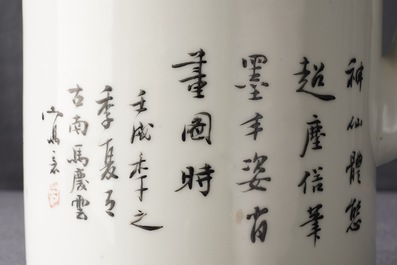 神仙體態
超塵俗筆
墨丰姿肖
畫圖時
壬戌年之
季夏月
古南馬慶雲
寫意